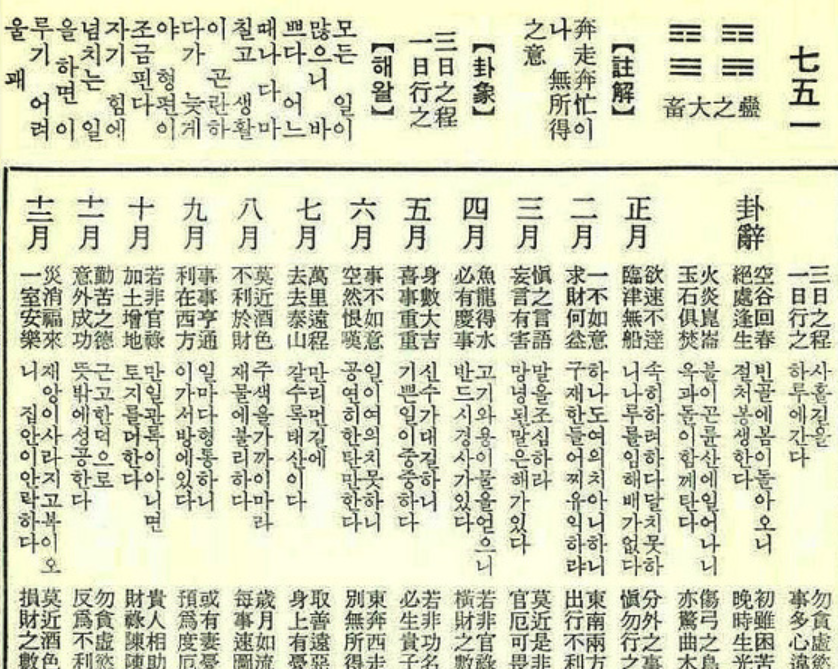 七五一
蠱之大畜
【註解】
奔走奔忙이
나 無所得
之意
【卦象】
三日之程
一日行之
【해왈】
모든 일이
많으니 바
쁘다 어느
때나 다 마
칠고 생활
이 곤란하
다가 늦게
야 형편이
조금 핀다
자기 힘에
넘치는 일
을 하면 이
루기 어려
울 괘
三日之程
一日行之
사흘길을
하루에간다
事多心
卦辭
空谷回春
絕處逢生
빈골에봄이돌아오니
절처봉생한다
初雖困
晩時生
火炎崑崙
玉石俱焚
불이곤륜산에일어나니
옥과돌이함께탄다
傷弓之
亦驚曲木
正月
欲速不達
臨津無船
속히하려하다달치못하
니나루를임해배가없다
分外之
愼勿行之
二月
一不如意
求財何益
하나도여의치아니하니
구재한들어찌유익하랴
東南兩方
出行不利
三月
愼之言語
妄言有害
말을조심하라
망녕된말은해가있다
莫近是非
官厄可畏
四月
魚龍得水
必有慶事
고기와용이물을얻으니
반드시경사가있다
若非官祿
橫財之數
五月
身數大吉
喜事重重
신수가대길하니
기쁜일이중중하다
若非功名
必生貴子
六月
事不如意
空然恨嘆
일이여의치못하니
공연히한탄만한다
東奔西走
別無所得
七月
萬里遠程
去去泰山
만리먼길에
갈수록태산이다
取善遠惡
身上有憂
八月
莫近酒色
不利於財
주색을가까이마라
재물에불리하다
歲月如流
每事速圖
九月
事事亨通
利在西方
일마다형통하니
이가서방에있다
或有妻憂
預爲度厄
十月
若非官祿
加土增地
만일관록이아니면
토지를더한다
貴人相助
財祿陳陳
十一月
勤苦之德
意外成功
근고한덕으로
뜻밖에성공한다
勿貪虛慾
反爲不利
十二月
災消福來
一室安樂
재앙이사라지고복이오
니 집안이안락하다
莫近酒色
損財之數